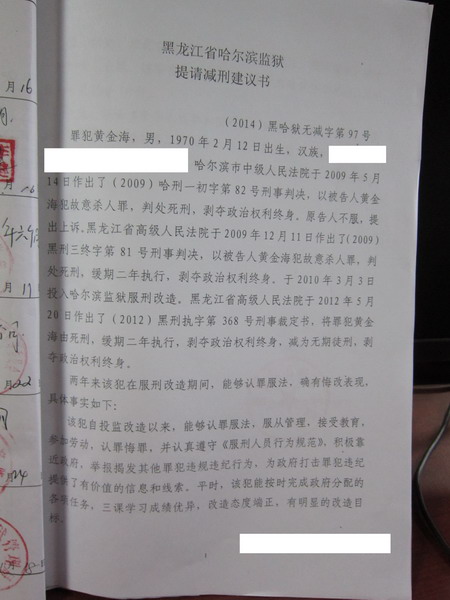 黑龙江省哈尔滨监狱
提请减刑建议书
（2014）黑哈狱无减字第 97 号
罪犯黄金海，男，1970 年 2 月 12 日出生，汉族，
哈尔滨市中级人民法院于 2009 年 5 月
14 日作出了（2009）哈刑一初字第 82 号刑事判决，以被告人黄金
海犯故意杀人罪，判处死刑，剥夺政治权利终身。原告人不服，提
出上诉。黑龙江省高级人民法院于 2009 年 12 月 11 日作出了（2009）
黑刑三终字第 81 号刑事判决，以被告人黄金海犯故意杀人罪，判
处死刑，缓期二年执行，剥夺政治权利终身。于 2010 年 3 月 3 日
投入哈尔滨监狱服刑改造。黑龙江省高级人民法院于 2012 年 5 月
20 日作出了（2012）黑刑执字第 368 号刑事裁定书，将罪犯黄金
海由死刑，缓期二年执行，剥夺政治权利终身，减为无期徒刑，剥
夺政治权利终身。
两年来该犯在服刑改造期间，能够认罪服法，确有悔改表现，
具体事实如下：
该犯自投监改造以来，能够认罪服法，服从管理，接受教育，
参加劳动，认罪悔罪，并认真遵守《服刑人员行为规范》，积极靠
近政府，举报揭发其他罪犯违规违纪行为，为政府打击罪犯违纪
提供了有价值的信息和线索。平时，该犯能按时完成政府分配的
各项任务，三课学习成绩优异，改造态度端正，有明显的改造目
标。
1
月 16
月 16
月 17
22
24